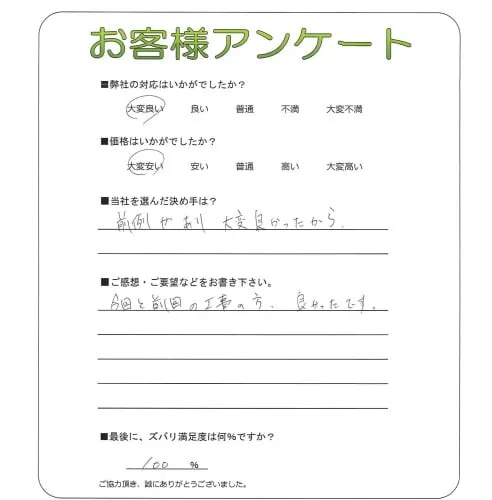 お客様アンケート
■弊社の対応はいかがでしたか？
大変良い 良い 普通 不満 大変不満
■価格はいかがでしたか？
大変安い 安い 普通 高い 大変高い
■当社を選んだ決め手は？
前例があり 大変良かったから.
■ご感想・ご要望などをお書き下さい。
今回と前回の工事の方、良かったです。
■最後に、ズバリ満足度は何%ですか？
100 %
ご協力頂き、誠にありがとうございました。